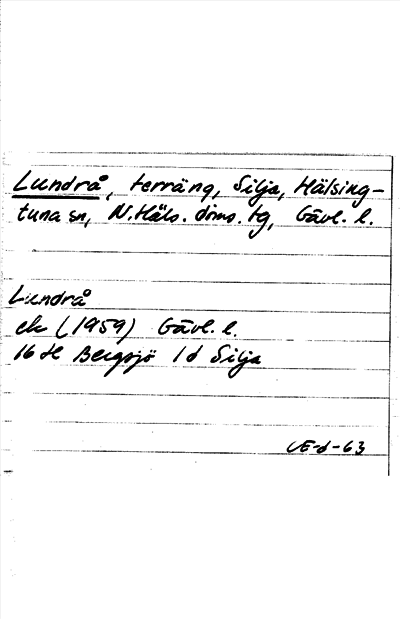 Lundrå, terräng, Silja, Hälsing-
tuna sn, N. Häls. doms. tg, Gävl. l.
Lundrå
ek (1959) Gävl. l.
16 H Bergsjö 1 d Silja